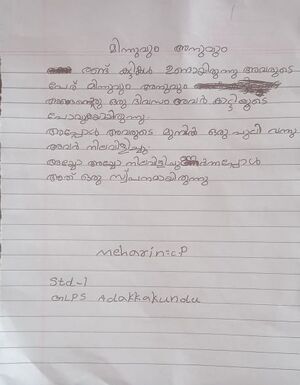 മിന്നുവും അനുവും
രണ്ട് കുട്ടികൾ ഉണ്ടായിരുന്നു അവരുടെ
പേര് മിന്നുവും അനുവും
ഒരു ദിവസം അവർ കാട്ടിലൂടെ
പോവുകയായിരുന്നു.
അപ്പോൾ അവരുടെ മുമ്പിൽ ഒരു പുലി വന്നു
അവർ നിലവിളിച്ചു.
അയ്യോ അയ്യോ നിലവിളിച്ചു
അത് ഒരു സ്വപ്നമായിരുന്നു
Meharin:cP
Std-1
GLPS Adakkakundu